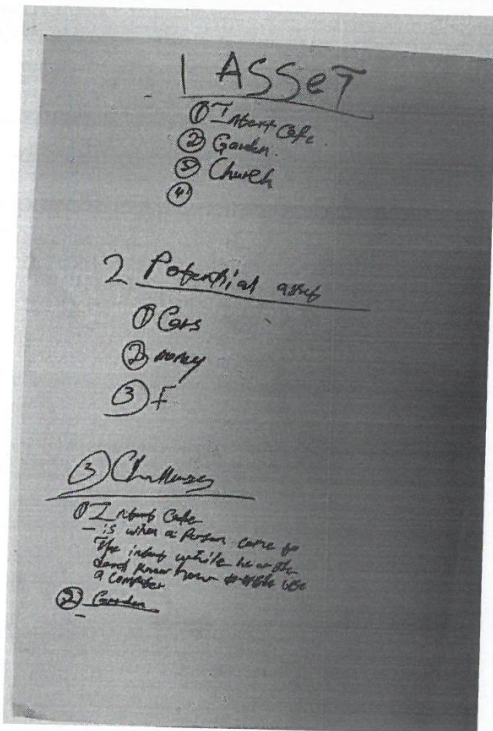 1 ASSeT
① Intert Cafe
② Garden.
③ Church
④
2 Potential asset
① Cars
② money
③ F
③ Challenges
① Intert Cafe
- is when a Person come to
The intert while he or she
dont know how to use
a computer
② Garden
-